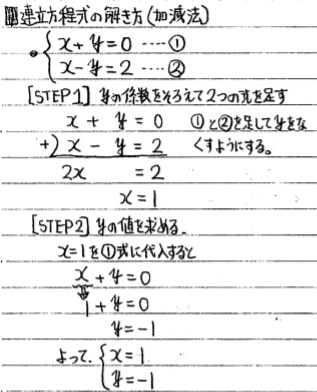 連立方程式の解き方(加減法)
x+y=0 ----①
x-y=2 ----②
[STEP1] yの係数をそろえて2つの式を足す
x + y = 0 ①と②を足してyをな
+) x - y = 2 くすようにする。
2x = 2
x = 1
[STEP2] yの値を求める。
x=1を①式に代入すると
x + y = 0
1 + y = 0
y = -1
よって、{ x = 1
y = -1